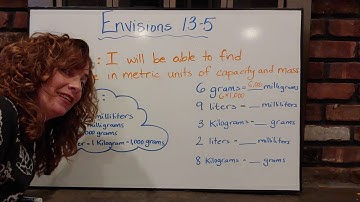 Envisions 13-5
: I will be able to find
in metric units of capacity and mass
:
6 grams = 6,000 milligrams
6×1,000
milliliters
9 liters = __ milliliters
milligrams
000 grams
3 Kilograms = __ grams
er = 1 Kilogram = 1,000 grams
2 liters = __ milliliters
8 Kilograms = __ grams